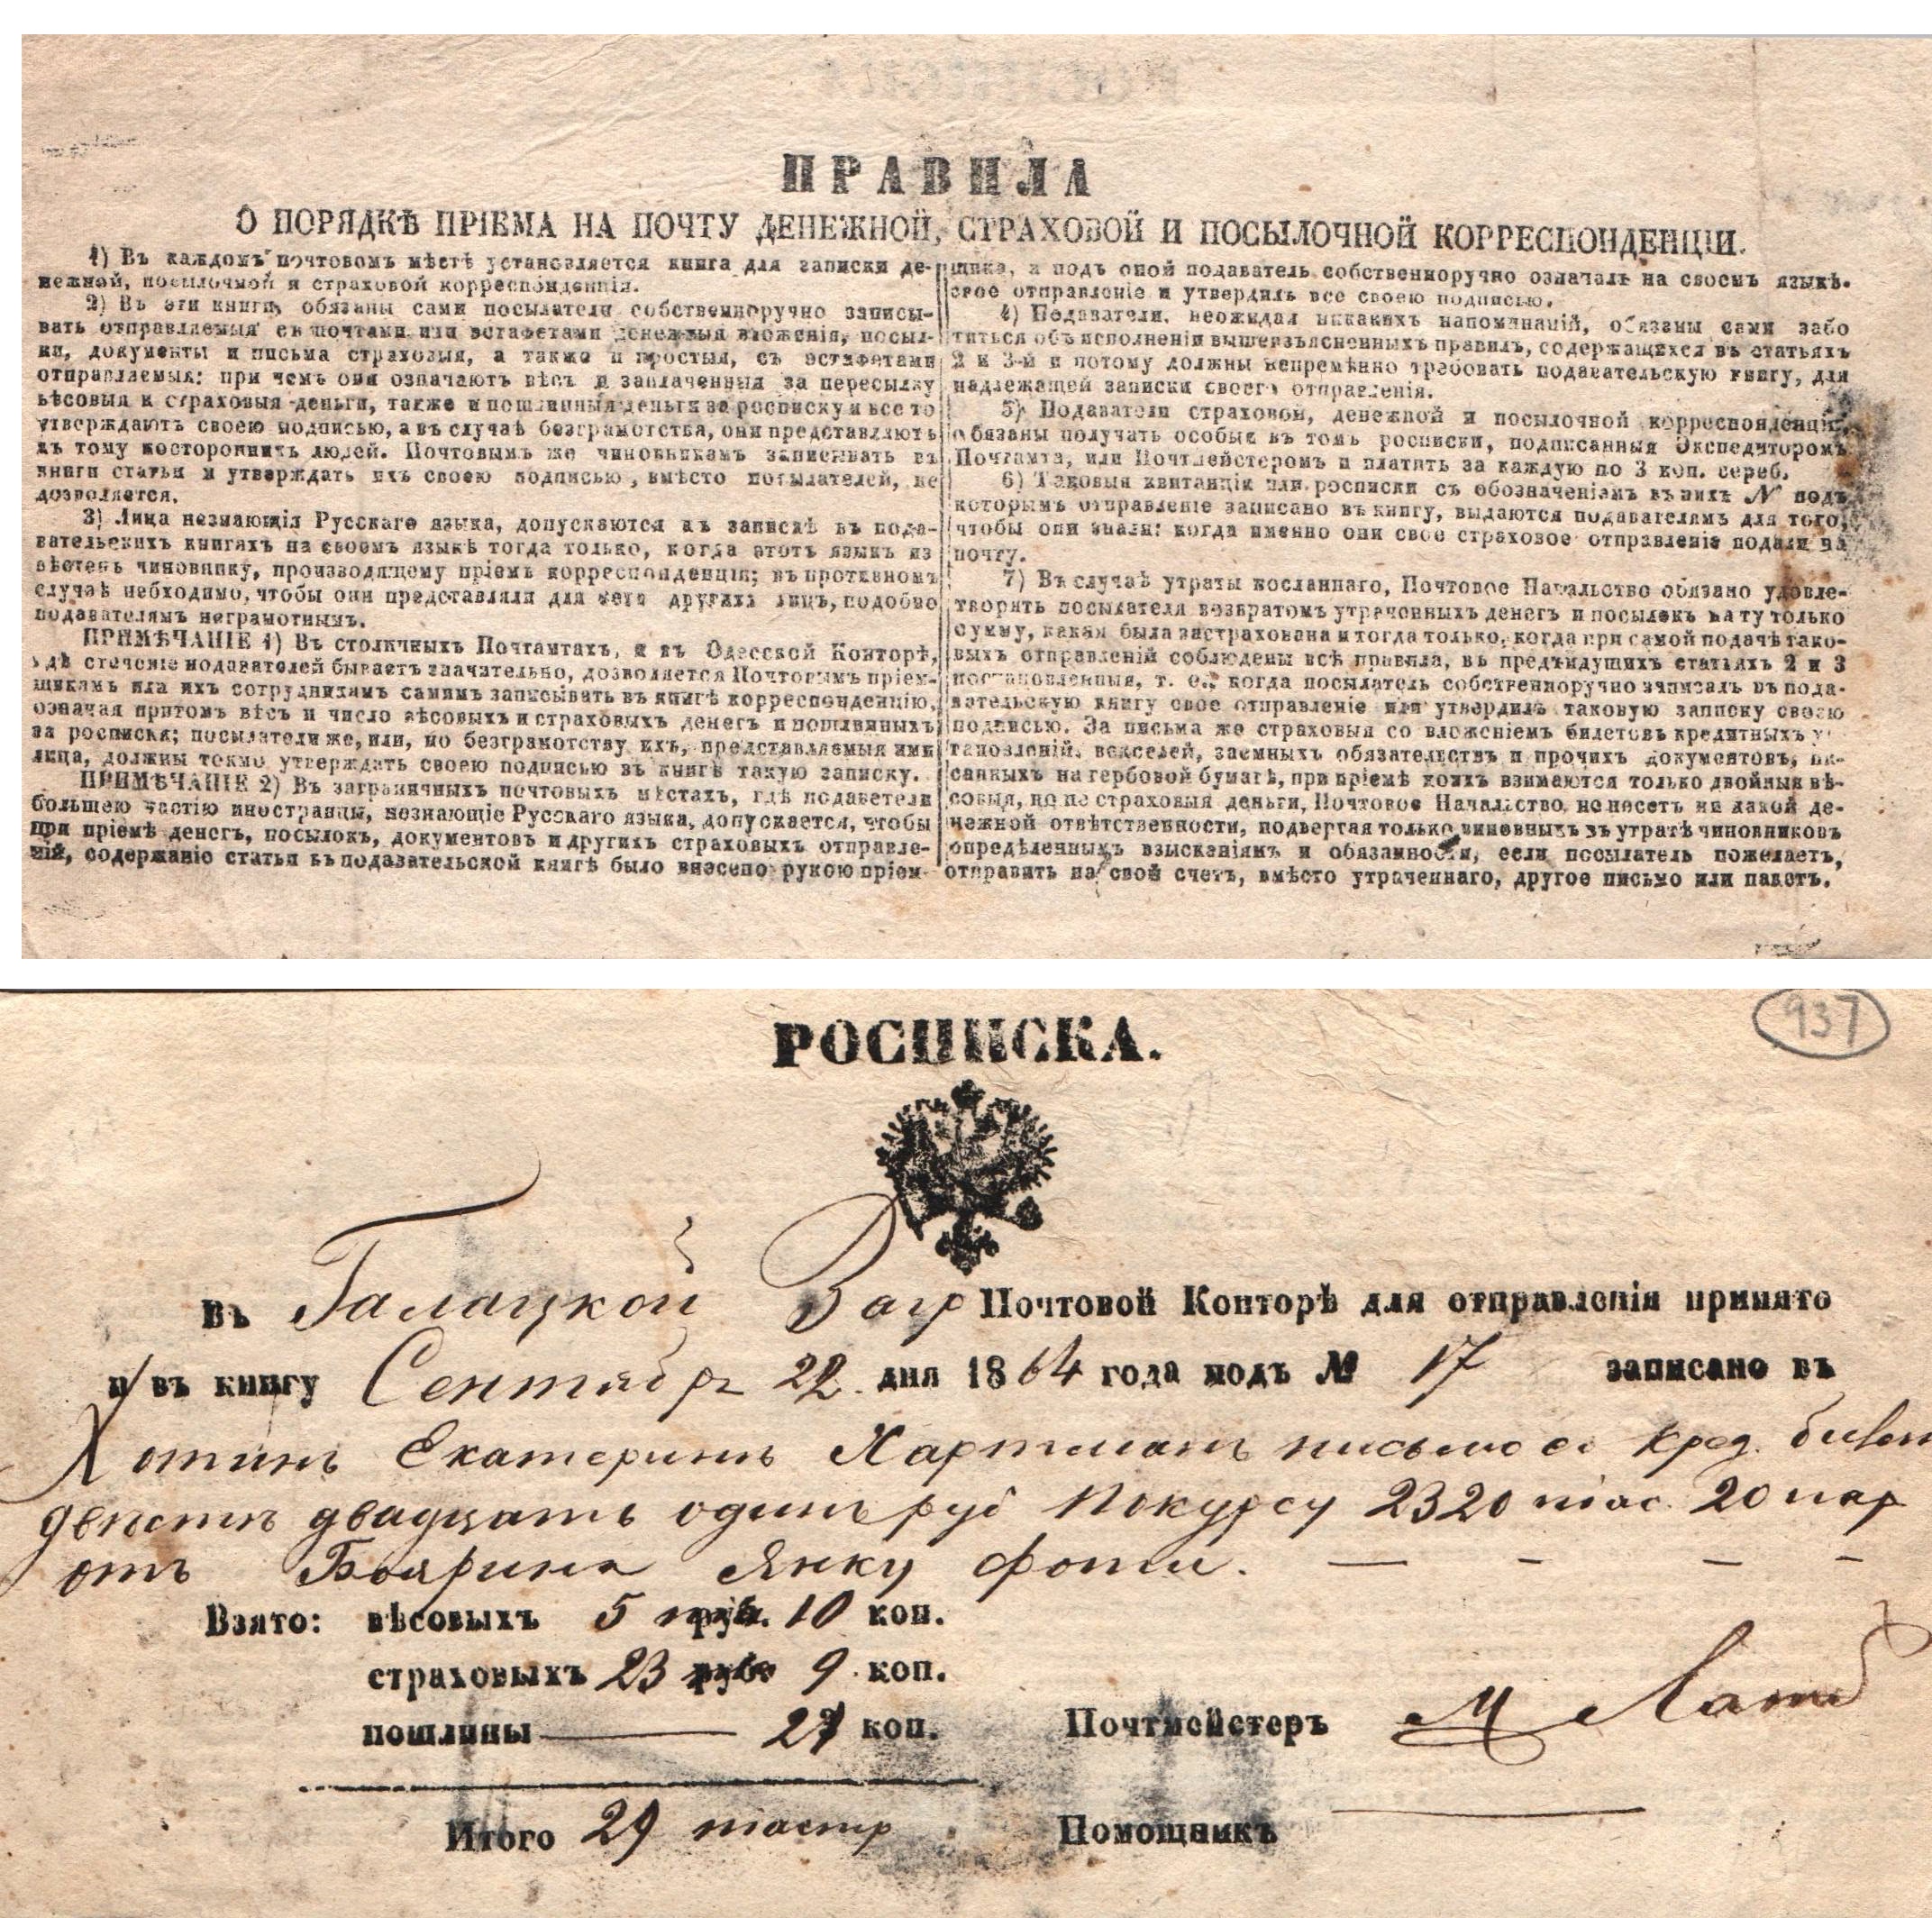 ПРАВИЛА
О ПОРЯДКѢ ПРІЕМА НА ПОЧТУ ДЕНЕЖНОЙ, СТРАХОВОЙ И ПОСЫЛОЧНОЙ КОРРЕСПОНДЕНЦІИ.
1) Въ каждомъ почтовомъ мѣстѣ установляется книга для записки де-
нежной, посылочной и страховой корреспонденціи.
2) Въ эти книги, обязаны сами посылатели собственноручно записы-
вать отправляемыя съ почтами или эстафетами денежныя вложенія, посыл-
ки, документы и письма страховыя, а также и простыя, съ эстафетами
отправляемыя: при чемъ они означаютъ вѣсъ и заплаченныя за пересылку
вѣсовыя и страховыя деньги, также и пошлинныя деньги за росписку и все то
утверждаютъ своею подписью, а въ случаѣ безграмотства, они представляютъ
къ тому постороннихъ людей. Почтовымъ же чиновникамъ записывать въ
книги статьи и утверждать ихъ своею подписью, вмѣсто посылателей, не
дозволяется.
3) Лица незнающія Русскаго языка, допускаются къ запискѣ въ пода-
вательскихъ книгяхъ на своемъ языкѣ тогда только, когда этотъ языкъ из
вѣстенъ чиновнику, производящему пріемъ корреспонденціи; въ противномъ
случаѣ небходимо, чтобы они представляли для сего другихъ лицъ, подобно
подавателямъ неграмотнымъ.
ПРИМѢЧАНІЕ 1) Въ столичныхъ Почтамтахъ, и въ Одесской Конторѣ,
гдѣ стеченіе подавателей бываетъ значательно, дозволяется Почтовымъ пріем-
щикамъ или ихъ сотрудникамъ самимъ записывать въ книгѣ корреспонденцію,
означая притомъ вѣсъ и число вѣсовыхъ и страховыхъ денегъ и пошлинныхъ
за росписки; посылатели же, или, по безграмотству ихъ, представляемыя ими
лица, должны токмо утверждать своею подписью въ книгѣ такую записку.
ПРИМѢЧАНІЕ 2) Въ заграничныхъ почтовыхъ мѣстахъ, гдѣ подаветели
большею частію иностранцы, незнающіе Русскаго языка, допускается, чтобы
при пріемѣ денегъ, посылокъ, документовъ и другихъ страховыхъ отправле-
ній, содержаніе статьи въ подавательской книгѣ было внесено рукою пріем-
щика, а подъ оной подаватель собственноручно означалъ на своемъ языкѣ.
свое отправленіе и утвердилъ все своею подписью.
4) Подаватели, неожидая никакихъ напоминаній, обязаны сами забо
титься объ исполненіи вышеизъясненныхъ правилъ, содержащихся въ статьяхъ
2 и 3-й и потому должны непремѣнно требовать подавательскую книгу, для
надлежащей записки своего отправленія.
5) Подаватели страховой, денежной и посылочной корреспонденціи,
обязаны получать особыя въ томъ росписки, подписанныя Экспедиторомъ
Почтамта, или Почтмейстеромъ и платить за каждую по 3 коп. сереб.
6) Таковыя квитанціи или росписки съ обозначеніемъ въ нихъ № подъ
которымъ отправленіе записано въ книгу, выдаются подавателямъ для того,
чтобы они знали: когда именно они свое страховое отправленіе подали на
почту.
7) Въ случаѣ утраты посланнаго, Почтовое Начальство обязано удовле-
творять посылателя возвратомъ утраченныхъ денегъ и посылокъ на ту только
сумму, какая была застрахована и тогда только, когда при самой подачѣ тако-
выхъ отправленій соблюдены всѣ правила, въ предъидущихъ статьяхъ 2 и 3
постановленныя, т. е., когда посылатель собственноручно записалъ въ пода-
вательскую книгу свое отправленіе или утвердилъ таковую записку своею
подписью. За письма же страховыя со вложеніемъ билетовъ кредитныхъ ус
тановленій, векселей, заемныхъ обязательствъ и прочихъ документовъ, пи-
санныхъ на гербовой бумагѣ, при пріемѣ коихъ взимаются только двойныя вѣ-
совыя, но не страховыя деньги, Почтовое Начальство не несетъ ни какой де-
нежной отвѣтственности, подвергая только виновныхъ въ утратѣ чиновниковъ
опредѣленнымъ взысканіямъ и обязанности, если посылатель пожелаетъ,
отправить на свой счетъ, вмѣсто утраченнаго, другое письмо или пакетъ.
937
РОСПИСКА.
Въ Галацкой Загр Почтовой Конторѣ для отправленія принято
и въ книгу Сентябр 22 дня 1864 года подъ № 17 записано въ
Хотинъ Екатеринѣ Хартманъ письмо со кред. билет
двѣсти двадцать одинъ руб по курсу 2320 піас. 20 пар
отъ Боярина Янку Фоти.
Взято: вѣсовыхъ 5 руб. 10 коп.
страховыхъ 23 руб. 9 коп.
пошлины 21 коп.
Почтмейстеръ М
Итого 29 піастр
Помощникъ